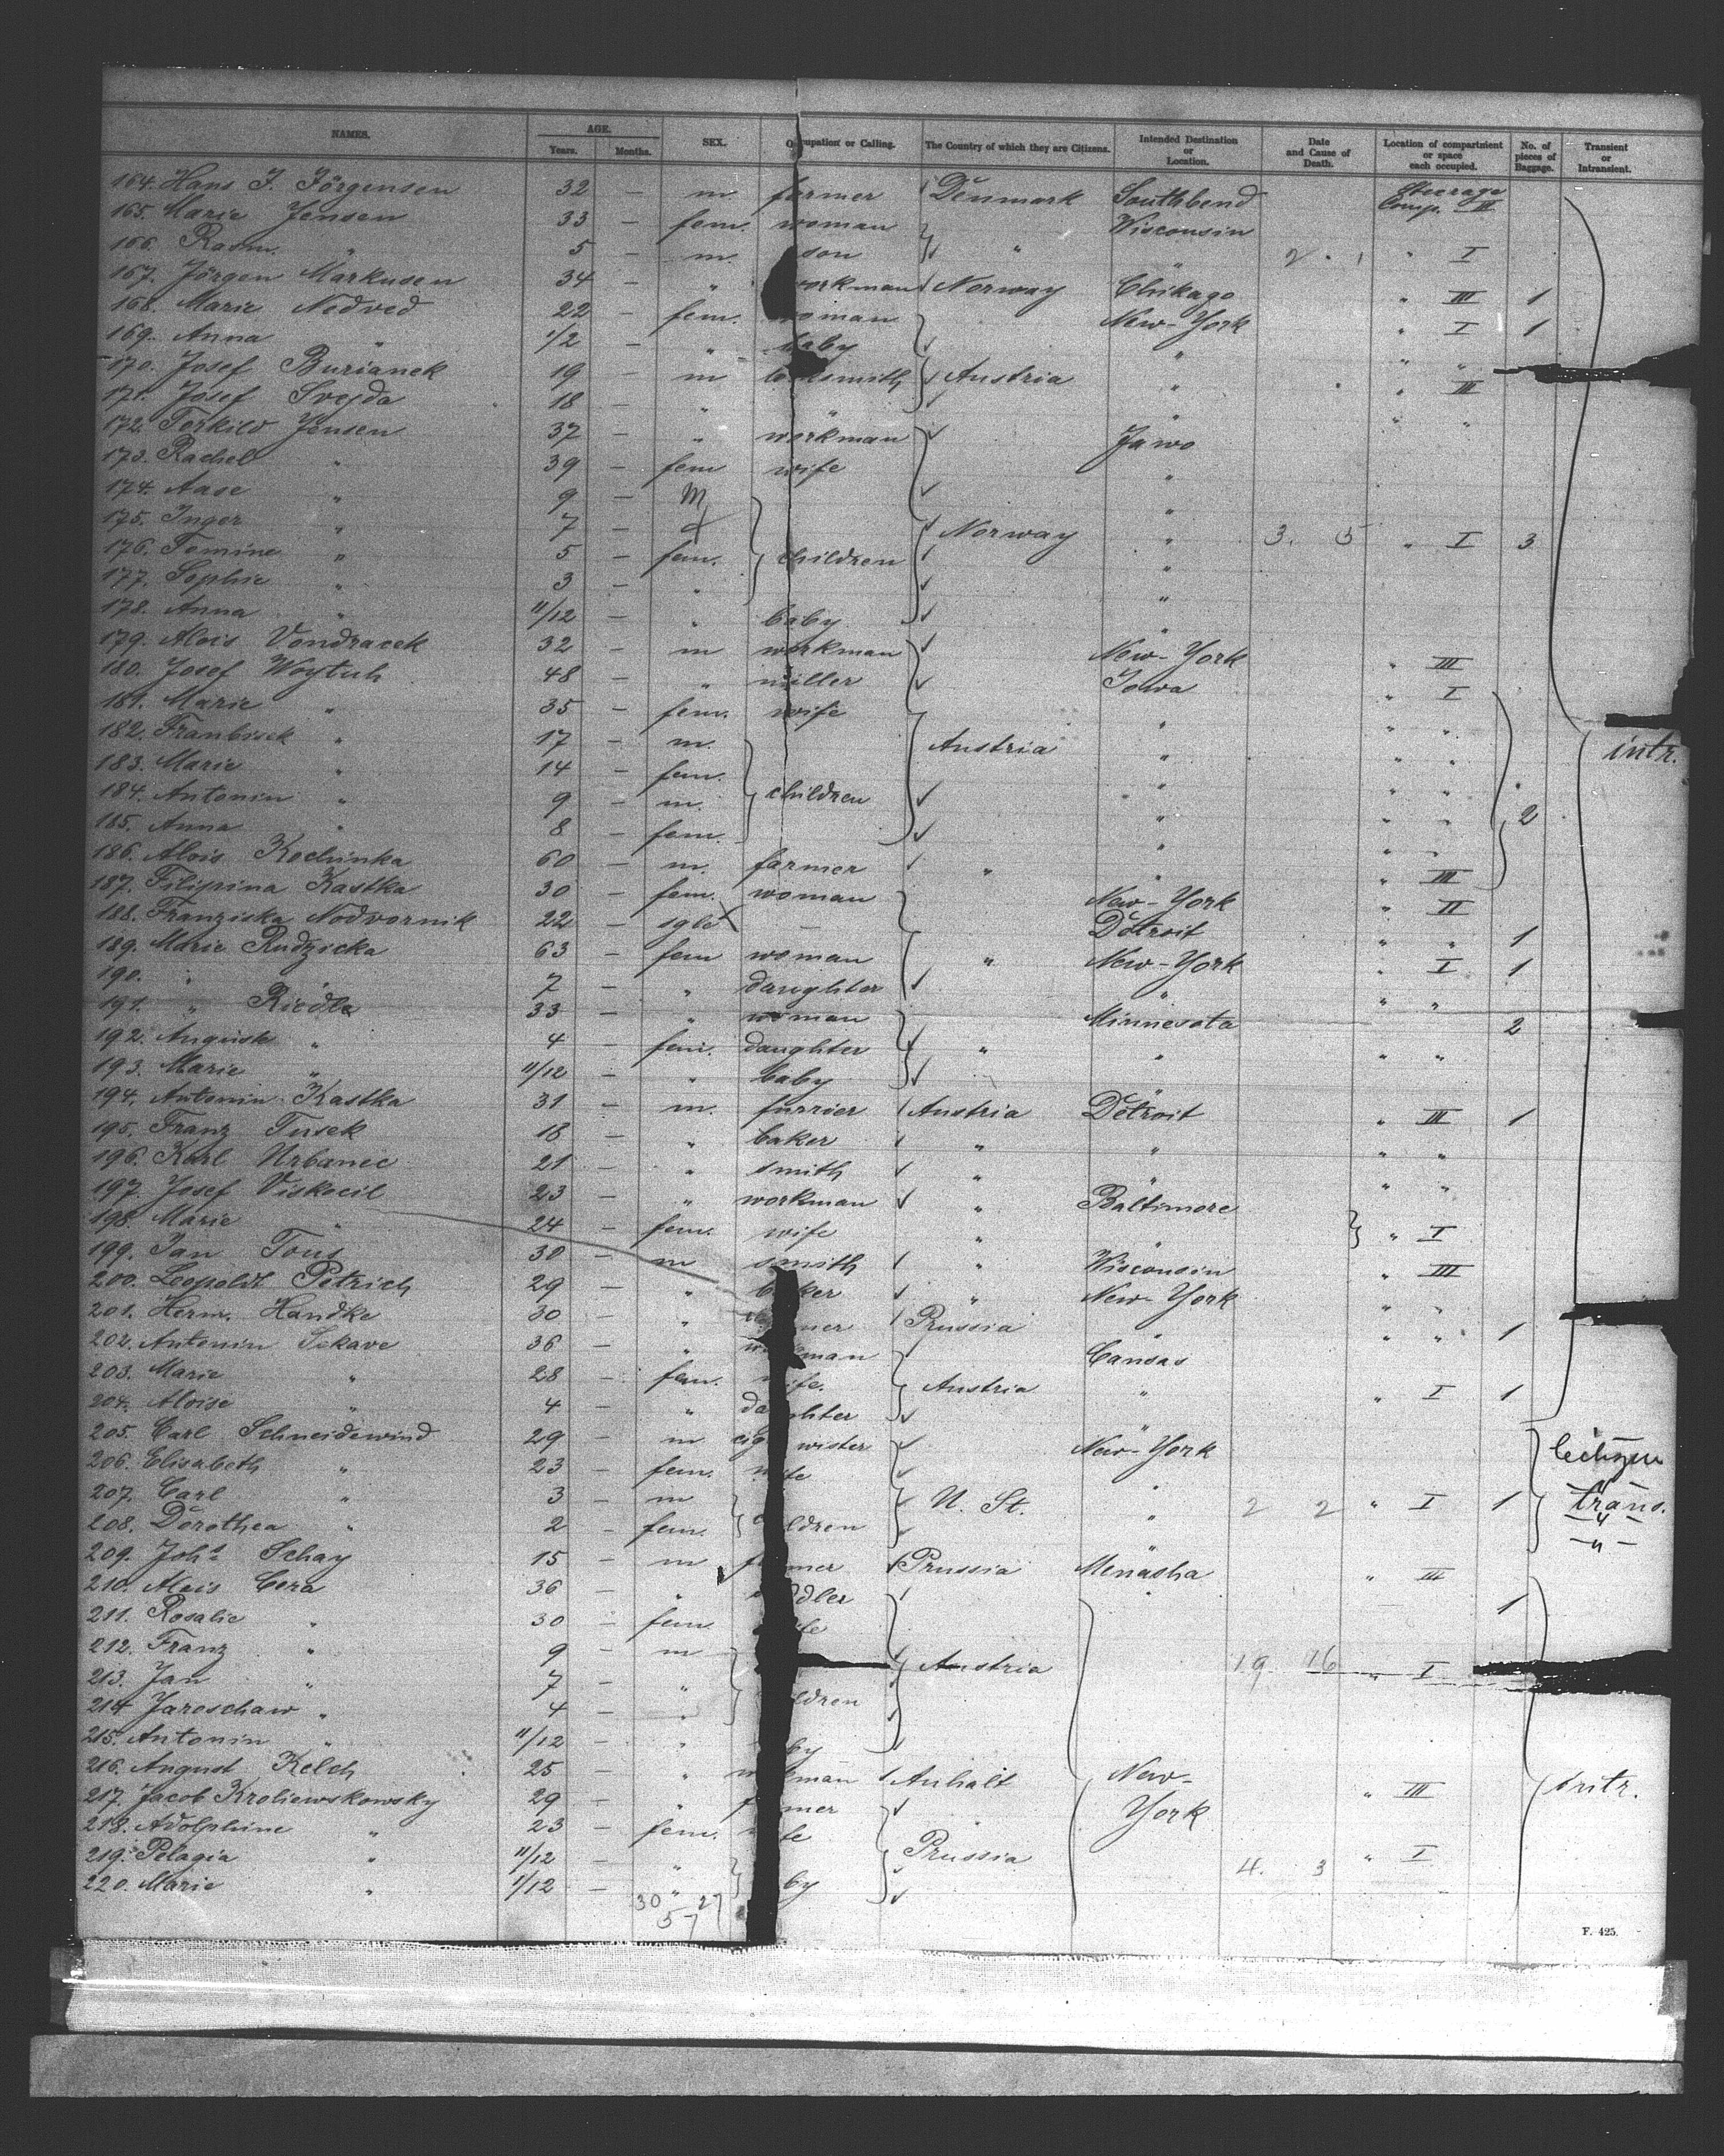 NAMES. AGE. Years. Months. SEX. Occupation or Calling. The Country of which they are Citizens. Intended Destination or Location. Date and Cause of Death. Location of compartment or space each occupied. No. of pieces of Baggage. Transient or Intransient.
164. Hans J. Jörgensen 32 — m farmer Denmark Southbend Steerage Comp. III
165. Marie Jensen 33 — fem. woman Wisconsin
166. Rasm. " 5 — m. son " " 2 . 1 " I
167. Jörgen Markusen 34 — " workman Norway Chikago " III 1
168. Marie Nedved 22 — fem. woman New-York " I 1
169. Anna " 1/2 — " baby " " "
170. Josef Burianek 19 — m locksmith Austria " " III
171. Josef Svejda 18 — " " " " "
172. Terkild Jensen 37 — " workman Jawo
173. Rachel " 39 — fem wife "
174. Aase " 9 — M "
175. Inger " 7 — Norway " 3. 5 " I 3
176. Tomine " 5 — fem. children "
177. Sophie " 3 — " "
178. Anna " 11/12 — " baby "
179. Alois Vondracek 32 — m workman New-York " III
180. Josef Woytuh 48 — " miller Iowa " I
181. Marie " 35 — fem. wife " " "
182. Frantisek " 17 — m. Austria " " " intr.
183. Marie " 14 — fem. " " "
184. Antonin " 9 — m. children " " " 2
185. Anna " 8 — fem. " " "
186. Alois Kochinka 60 — m. farmer " " " III
187. Filipina Kastka 30 — fem. woman New-York " II
188. Franziska Nodvornik 22 — sgle X — Detroit " " 1
189. Marie Rudzicka 63 — fem woman " New-York " I 1
190. " " 7 — " daughter " " "
191. " Riedle 33 — " woman Minnesota 2
192. Auguste " 4 — fem. daughter " " " "
193. Marie " 11/12 — " baby "
194. Antonin Kastka 31 — m. furrier Austria Detroit " III 1
195. Franz Tusek 18 — " baker " " " "
196. Karl Urbanec 21 — " smith " " " "
197. Josef Viskocil 23 — " workman " Baltimore
198. Marie " 24 — fem. wife " " " I
199. Jan Tous 30 — m smith " Wisconsin " III
200. Leopoldt Petrich 29 — " baker " New-York " "
201. Herm. Handke 30 — " Prussia " " " 1
202. Antonin Sekave 36 — " workman Cansas
203. Marie " 28 — fem. wife. Austria " " I 1
204. Aloise " 4 — " daughter "
205. Carl Schneidewind 29 — m cig wister New-York Citizen
206. Elisabeth " 23 — fem. wife "
207. Carl " 3 — m U. St. " 2 2 " I 1 trans.
208. Dorothea " 2 — fem. children " — " —
209. Joh.s Schay 15 — m farmer Prussia Menasha " III — " —
210. Alois Cera 36 — " " 1
211. Rosalie " 30 — fem wife
212. Franz " 9 — m Austria 19 16 " I
213. Jan " 7 — "
214. Jaroschaw " 4 — " children
215. Antonin " 11/12 — " baby
216. August Kelch 25 — " workman Anhalt New- " III intr.
217. Jacob Kroliewskowsky 29 — " farmer York
218. Adolphine " 23 — fem. wife
219. Pelagia " 11/12 — " Prussia 4. 3 " I
220. Marie " 1/12 — " baby
30 27
57
F. 425.